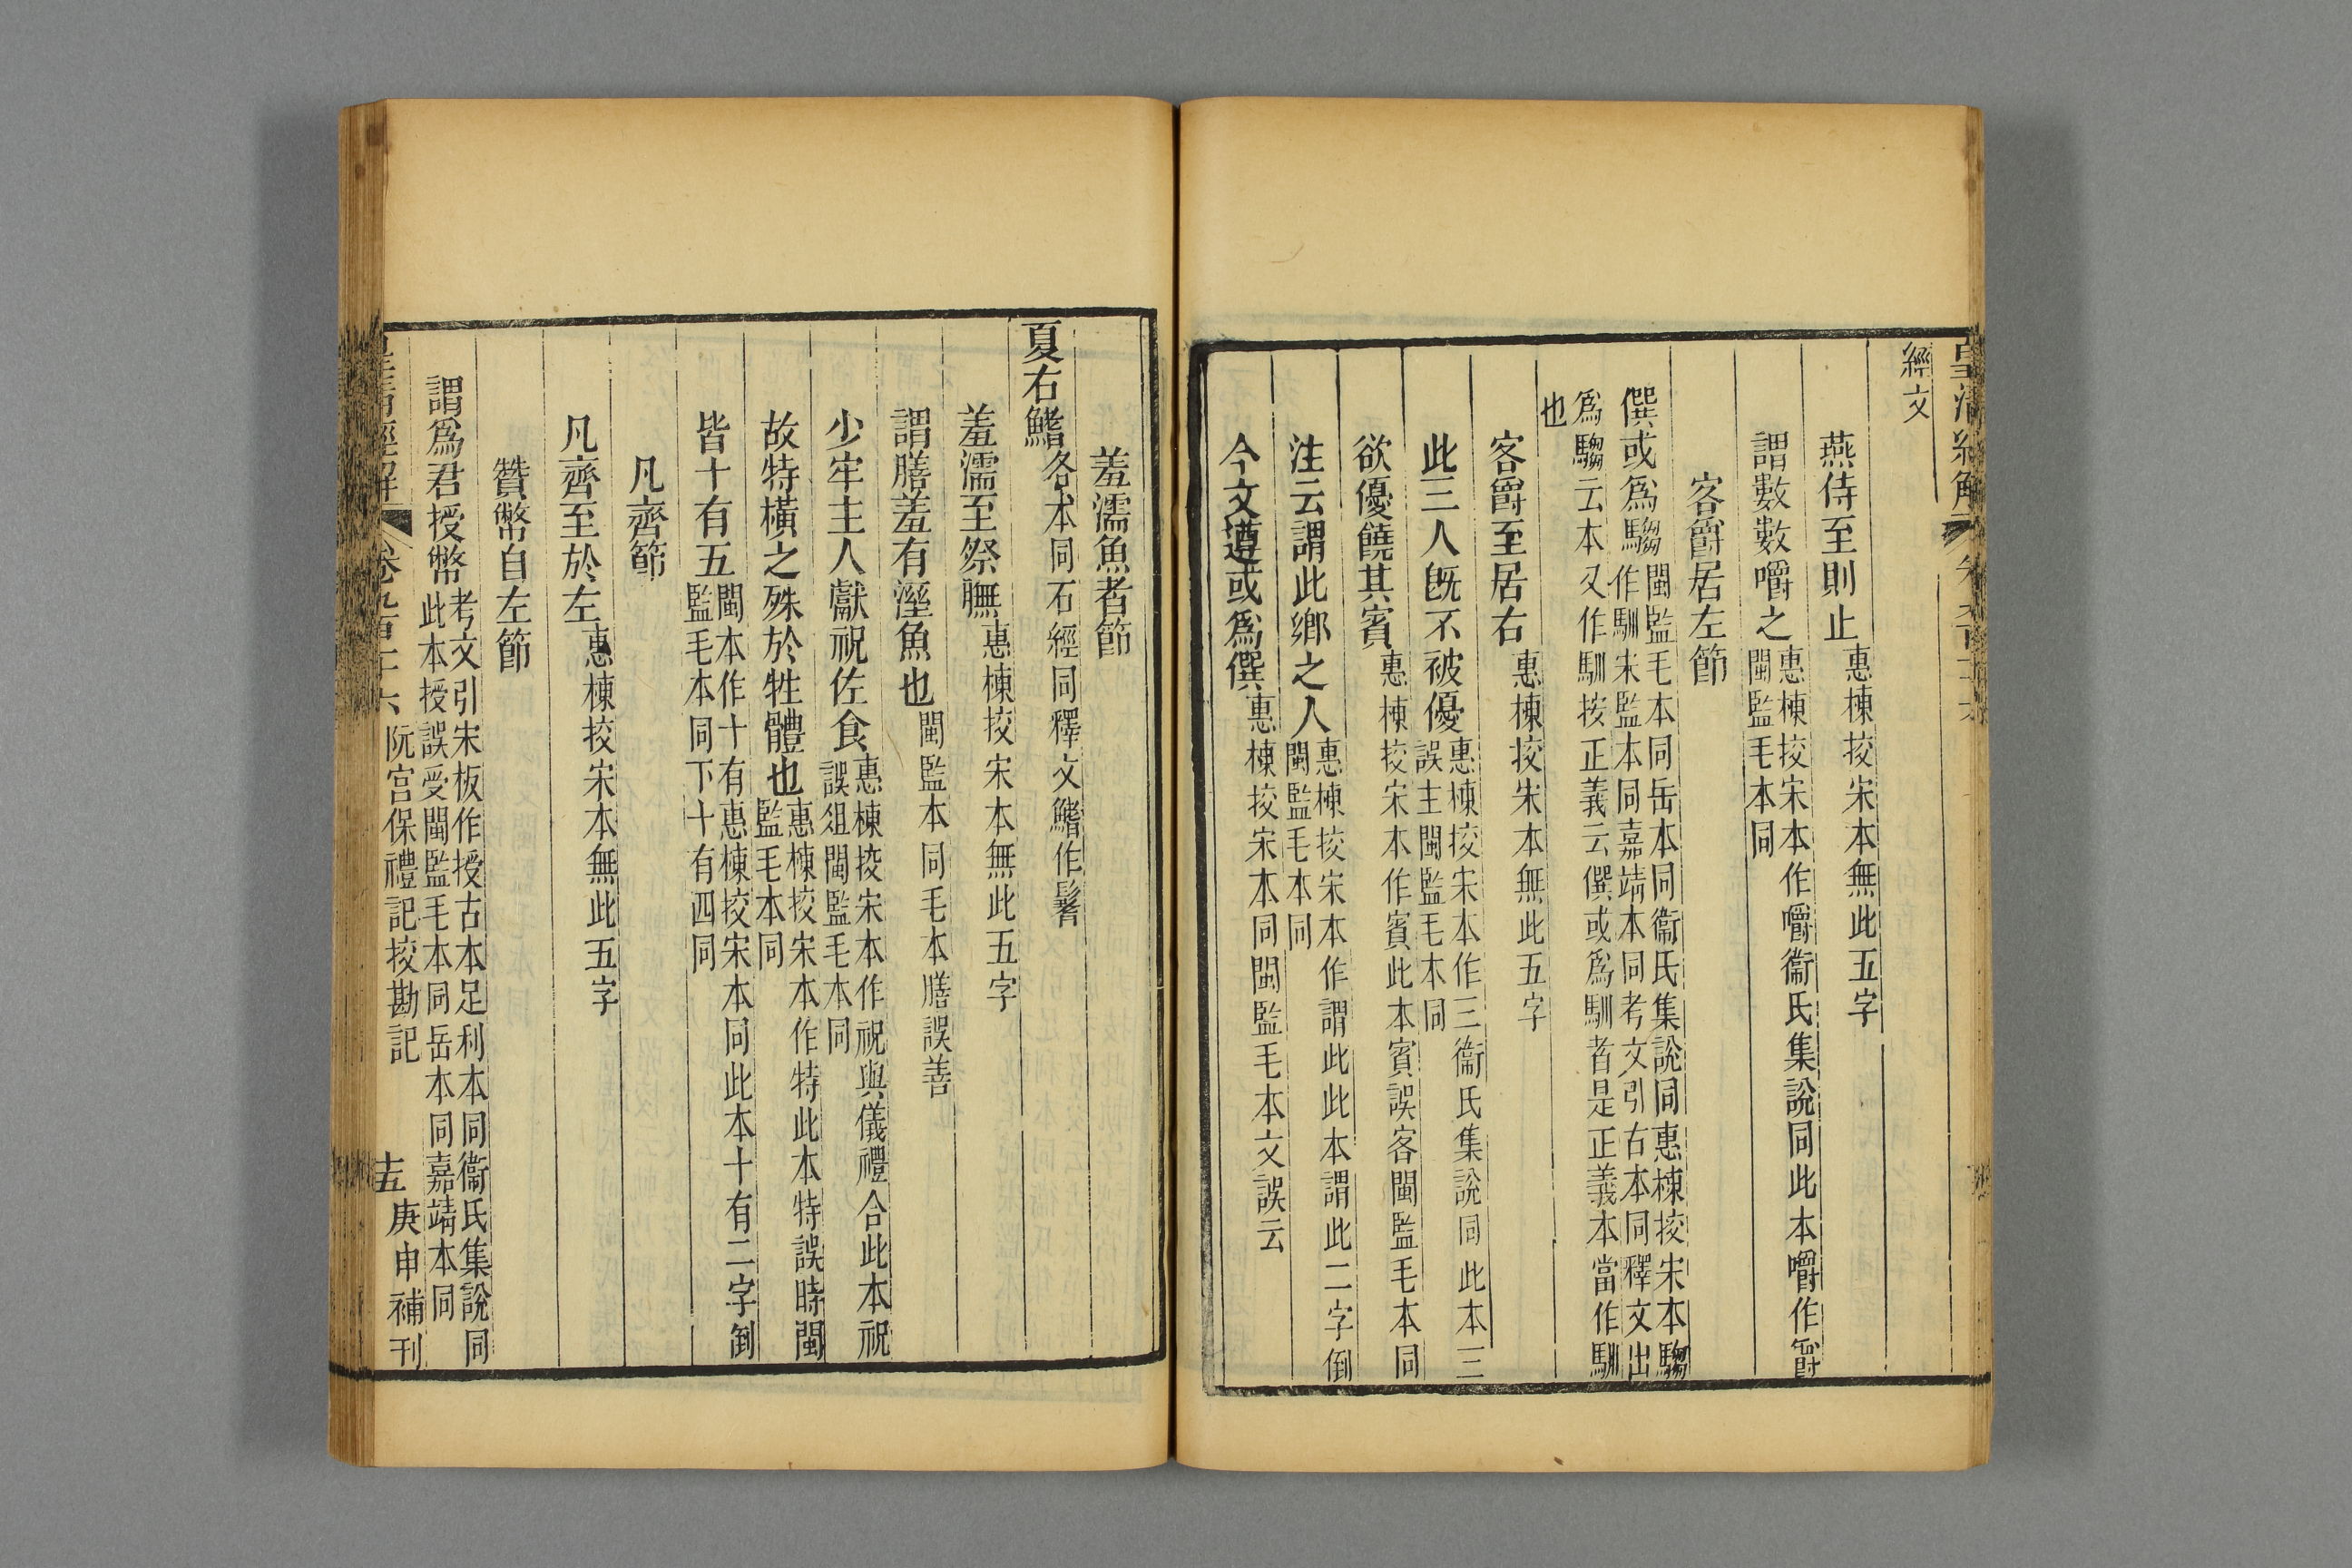 皇清經解
經文
燕侍至則止惠棟挍宋本無此五字
謂數數嚼之惠棟挍宋本作嚼衞氏集說同此本嚼作爵閩監毛本同
客爵居左節
僎或爲騶閩監毛本同岳本同衞氏集說同惠棟挍宋本騶作馴宋監本同嘉靖本同考文引古本同釋文出
爲騶云本又作馴按正義云僎或爲馴者是正義本當作馴也
客爵至居右惠棟挍宋本無此五字
此三人旣不被優惠棟挍宋本作三衞氏集說同此本三誤主閩監毛本同
欲優饒其賓惠棟挍宋本作賓此本賓誤客閩監毛本同
注云謂此鄉之人惠棟挍宋本作謂此此本謂此二字倒閩監毛本同
今文遵或爲僎惠棟挍宋本同閩監毛本文誤云
羞濡魚者節
夏右鰭各本同石經同釋文鰭作鬐
羞濡至祭膴惠棟挍宋本無此五字
謂膳羞有溼魚也閩監本同毛本膳誤善
少牢主人獻祝佐食惠棟挍宋本作祝與儀禮合此本祝誤俎閩監毛本同
故特橫之殊於牲體也惠棟挍宋本作特此本特誤時閩監毛本同
皆十有五閩本作十有惠棟挍宋本同此本十有二字倒監毛本同下十有四同
凡齊節
凡齊至於左惠棟挍宋本無此五字
贊幣自左節
謂爲君授幣考文引宋板作授古本足利本同衞氏集說同此本授誤受閩監毛本同岳本同嘉靖本同
阮宮保禮記挍勘記
庚申補刊